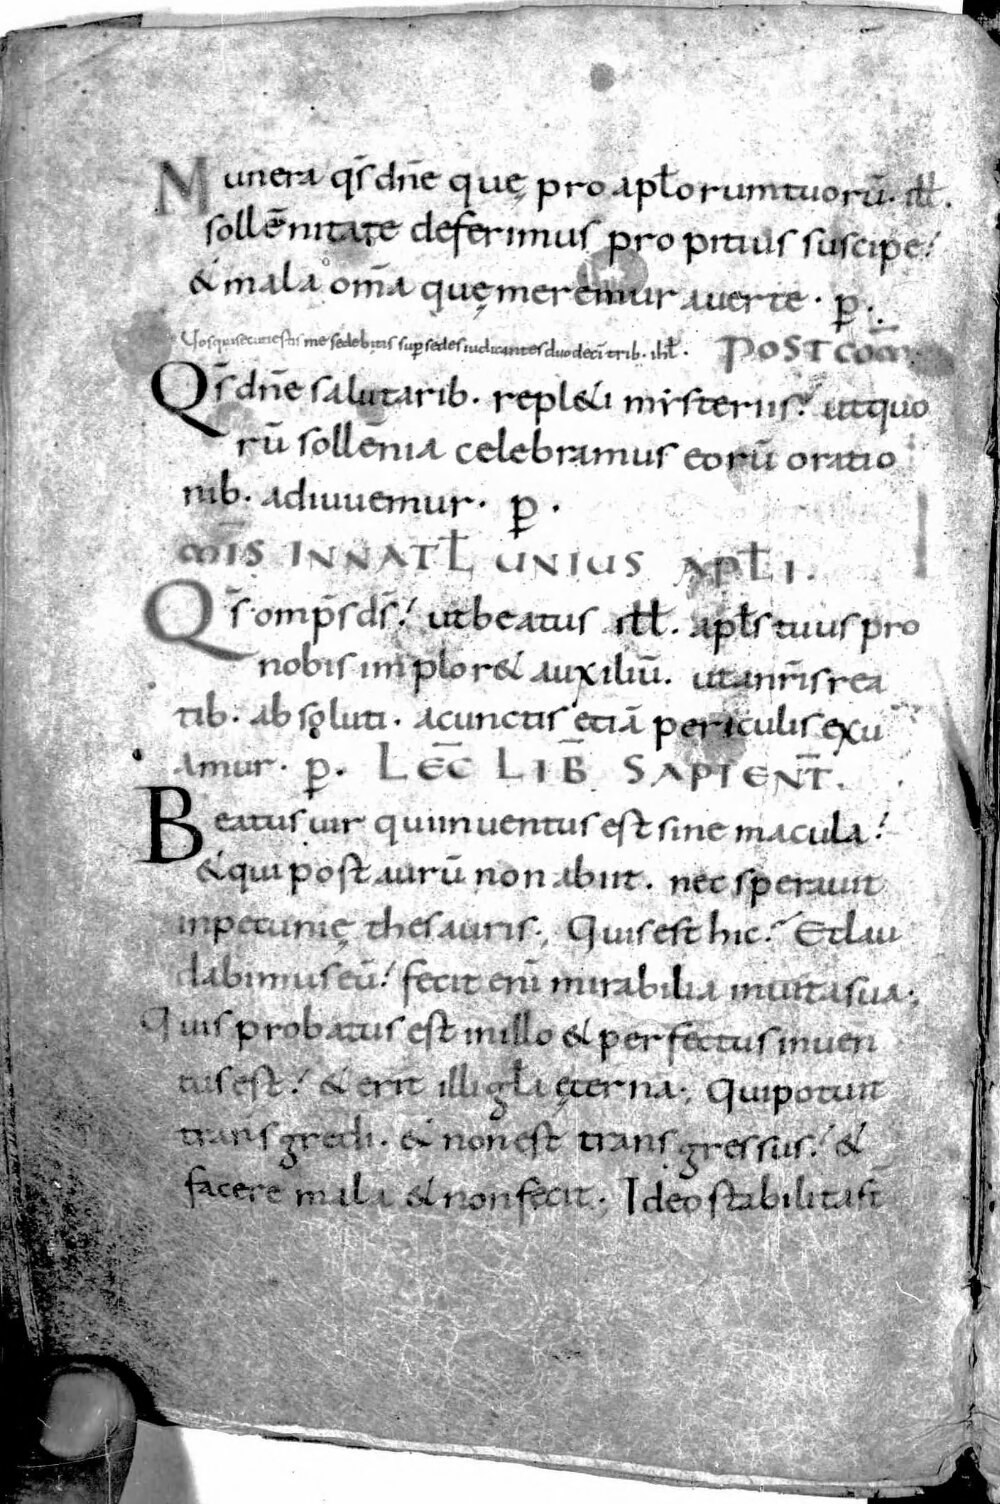 Munera qs̄ dn̄e quę pro apl̄orum tuorū. ill̄.
sollēnitate deferimus propitius suscipe.
& mala om̄a quę meremur auerte. p̄.
Uos qui secuti estis me sedebitis sup sedes iudicantes duodeci trib. isl̄. POST COM̄.
Qs̄ dn̄e salutarib. repl&i mysteriis. ut quo
rū sollēnia celebramus eorū oratio
nib. adiuuemur. p̄.
MIS̄ IN NATL̄ UNIUS APL̄I.
Qs̄ omps̄ ds̄. ut beatus ill̄. apl̄s tuus pro
nobis implor& auxiliū. ut a nr̄is rea
tib. absoluti. a cunctis etiā periculis exu
amur. p̄. LEC̄ LIB̄ SAPIENT̄.
Beatus uir qui inuentus est sine macula.
& qui post aurū non abiit. nec sperauit
in pecunię thesauris. Quis est hic. Et lau
dabimus eū. fecit eni mirabilia in uita sua;
Quis probatus est in illo & perfectus inuen
tus est. & erit illi gl̄a ęterna; Qui potuit
transgredi. & non est transgressus. &
facere mala & non fecit; Ideo stabilita st̄